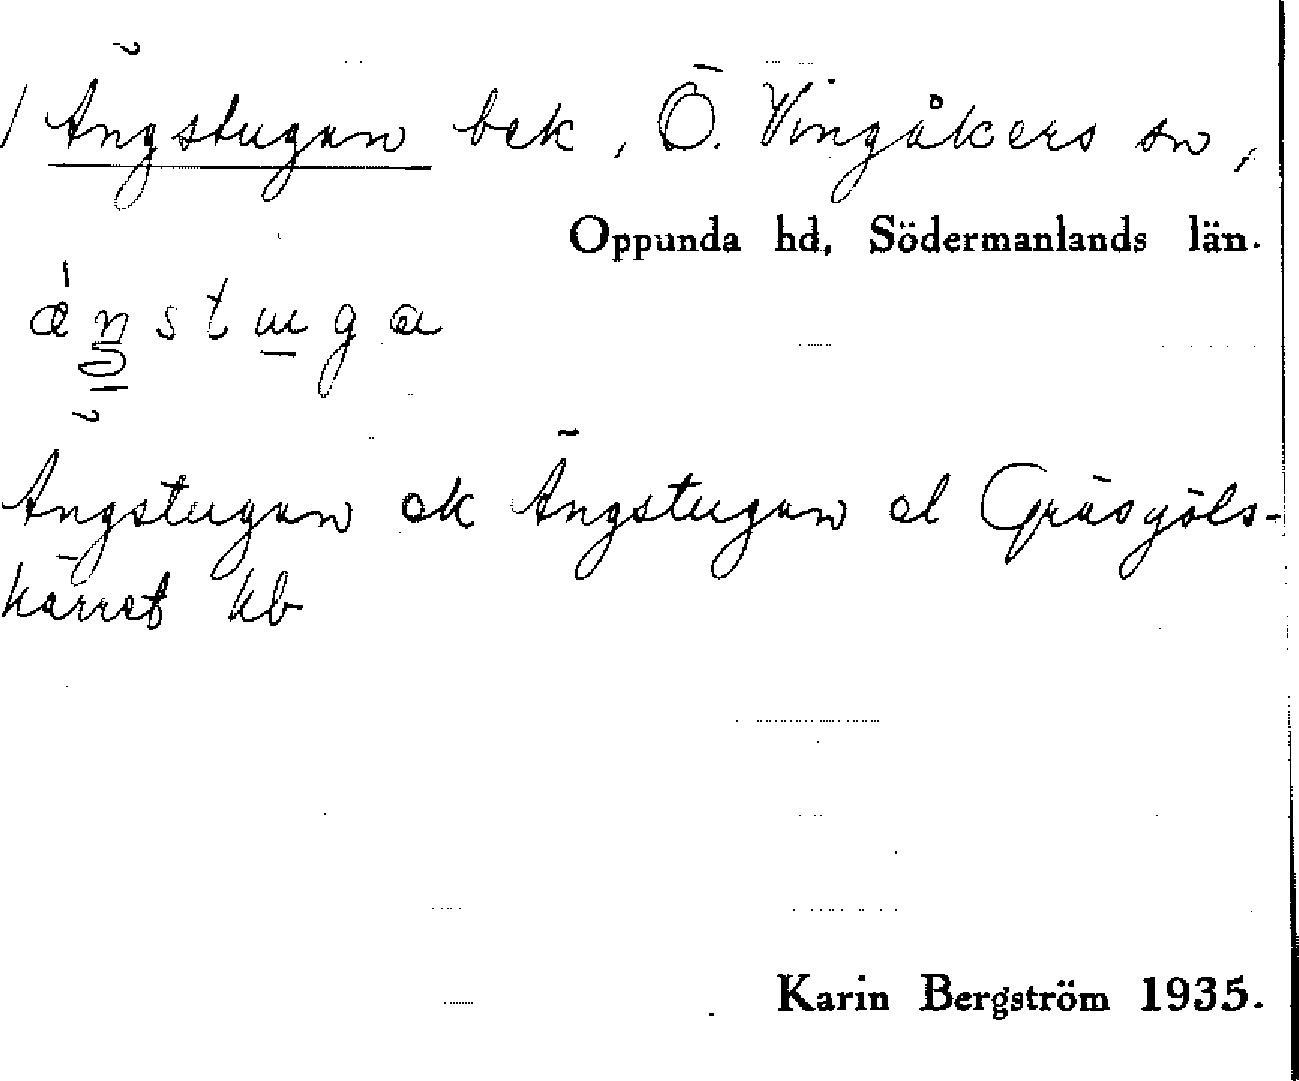 / Ängstugan bek, Ö. Vingåkers sn,
Oppunda hd, Södermanlands län.
Ängstugan ek Ängstugan el Gräsgöls-
kärret kb
Karin Bergström 1935.